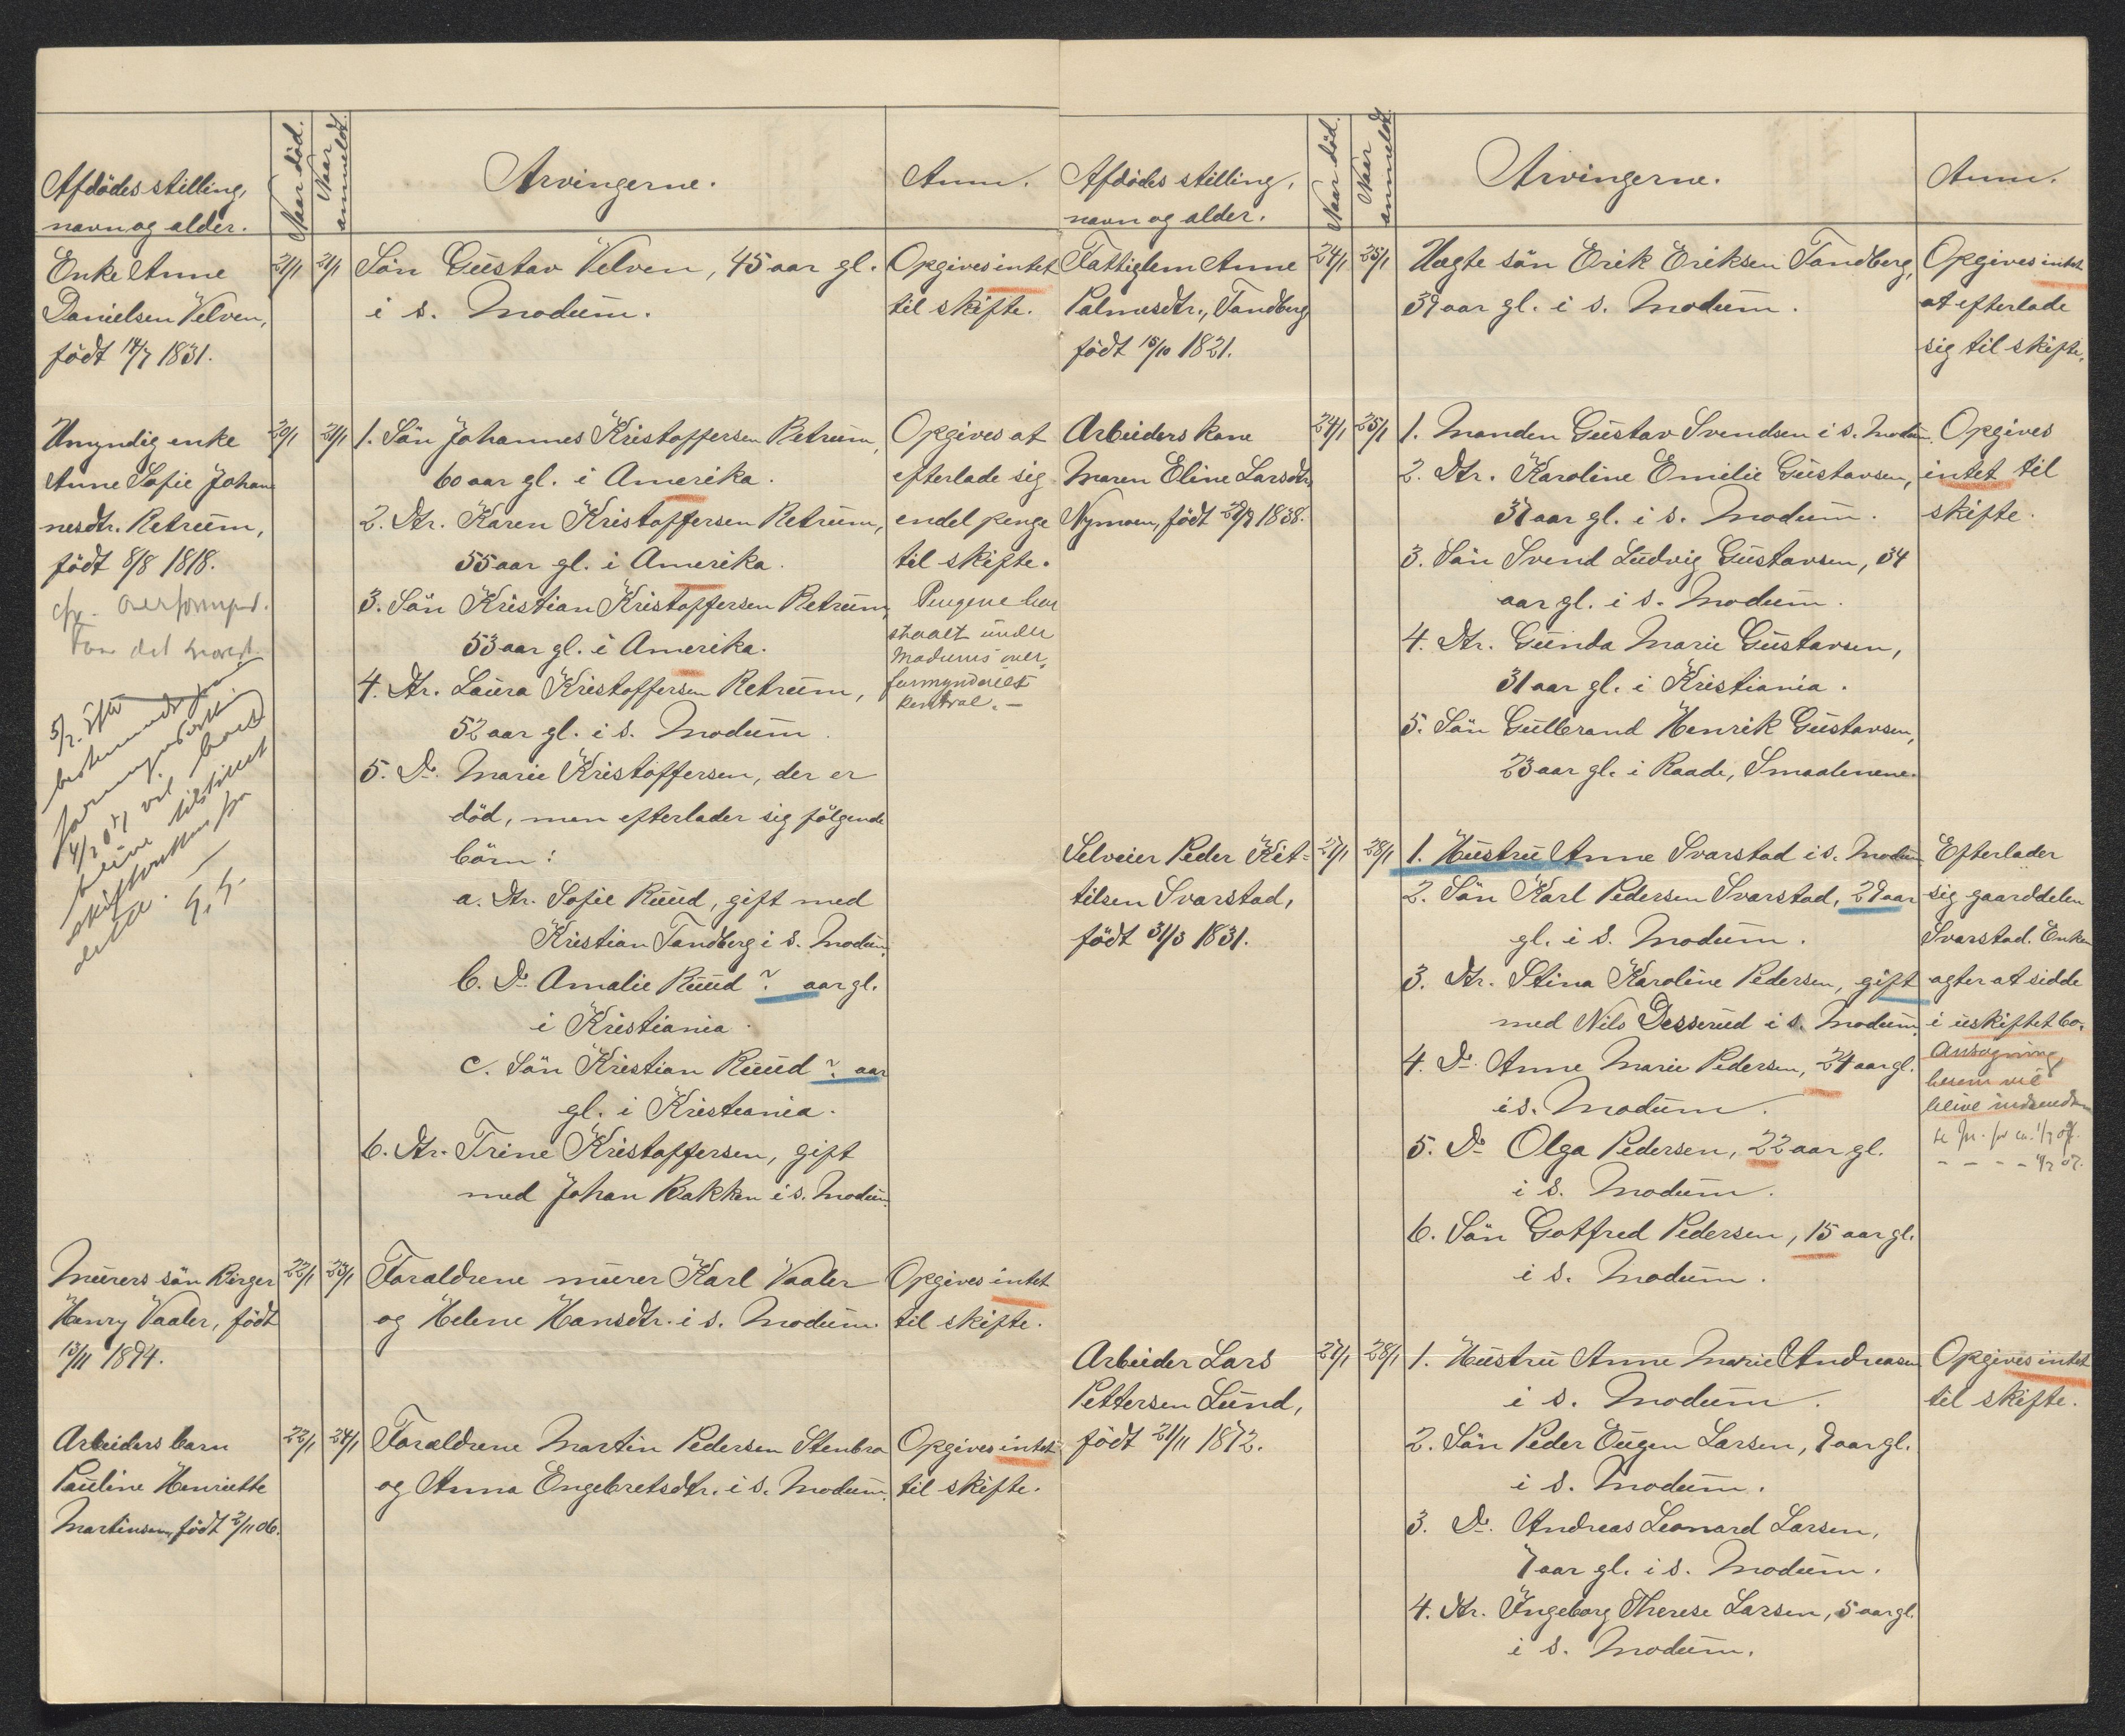 Afdödes stilling,
navn og alder.
Naar död.
Naar
anmeldt.
Arvingerne.
Anm.
Enke Anne
Danielsen Velven,
födt 14/7 1831.
21/1
21/1
Sön Gustav Velven, 45 aar gl.
i s. Modum.
Opgives intet
til skifte.
Umyndig enke
Anne Sofie Johan
nesdtr. Retrum,
födt 8/8 1818.
20/1
21/1
1. Sön Johannes Kristoffersen Retrum,
60 aar gl. i Amerika.
2. Dtr. Karen Kristoffersen Retrum,
55 aar gl. i Amerika.
3. Sön Kristian Kristoffersen Retrum,
53 aar gl. i Amerika.
4. Dtr. Laura Kristoffersen Retrum,
52 aar gl. i s. Modum.
5. Do. Marie Kristoffersen, der er
död, men efterlader sig følgende
börn:
a. Dtr. Sofie Ruud, gift med
Kristian Tandberg i s. Modum.
b. Do. Amalie Ruud ? aar gl.
i Kristiania.
c. Sön Kristian Ruud ? aar
gl. i Kristiania.
6. Dtr. Trine Kristoffersen, gift
med Johan Bakken i s. Modum.
Opgives at
efterlade sig
endel penge
til skifte.
Pengene har
staaet under
Modums over
formynderies
kontrol. -
5/2. Efter
4/2 07 vil
blive tilstillet
skifteretten fra
dette. -
Murers sön Birger
Henry Vaaler, födt
13/11 1894.
22/1
23/1
Forældrene murer Karl Vaaler
og Helene Hansdtr. i s. Modum.
Opgives intet
til skifte.
Arbeiders barn
Pauline Henriette
Martinsen, födt 2/11 06.
22/1
24/1
Forældrene Martin Pedersen Stenbro
og Anna Engebretsdtr. i s. Modum.
Opgives intet
til skifte.
Afdödes stilling,
navn og alder.
Naar död.
Naar
anmeldt.
Arvingerne.
Anm.
Fattiglem Anne
Palmesdtr., Tandberg
födt 15/10 1821.
24/1
25/1
Uægte sön Erik Eriksen Tandberg,
39 aar gl. i s. Modum.
Opgives intet
at efterlade
sig til skifte.
Arbeiders kone
Maren Eline Larsdtr.
Nymoen, födt 29/9 1838.
24/1
25/1
1. Manden Gustav Svendsen i s. Modum.
2. Dtr. Karoline Emilie Gustavsen,
37 aar gl. i s. Modum.
3. Sön Svend Ludvig Gustavsen, 34
aar gl. i s. Modum.
4. Dtr. Gunda Marie Gustavsen,
31 aar gl. i Kristiania.
5. Sön Gulbrand Henrik Gustavsen,
23 aar gl. i Raade, Smaalenene.
Opgives
intet til
skifte.
Selveier Peder Ket-
tilsen Svarstad,
födt 31/3 1831.
27/1
28/1
1. Hustru Anne Svarstad i s. Modum
2. Sön Karl Pedersen Svarstad, 29 aar
gl. i s. Modum.
3. Dtr. Stina Karoline Pedersen, gift
med Nils Desserud i s. Modum.
4. Do. Anne Marie Pedersen, 24 aar gl.
i s. Modum.
5. Do. Olga Pedersen, 22 aar gl.
i s. Modum.
6. Sön Gotfred Pedersen, 15 aar gl.
i s. Modum.
Efterlader
sig gaarddelen
Svarstad. Enken
agter at sidde
i uskiftet bo.
Ansøgning
herom vil
blive indsendt
Arbeider Lars
Pettersen Lund,
födt 21/11 1872.
27/1
28/1
1. Hustru Anne Marie Andreasen
i s. Modum.
2. Sön Peder Eugen Larsen, 9 aar gl.
i s. Modum.
3. Do. Andreas Leonard Larsen,
7 aar gl. i s. Modum.
4. Dtr. Ingeborg Therese Larsen, 5 aar gl.
i s. Modum.
Opgives intet
til skifte.